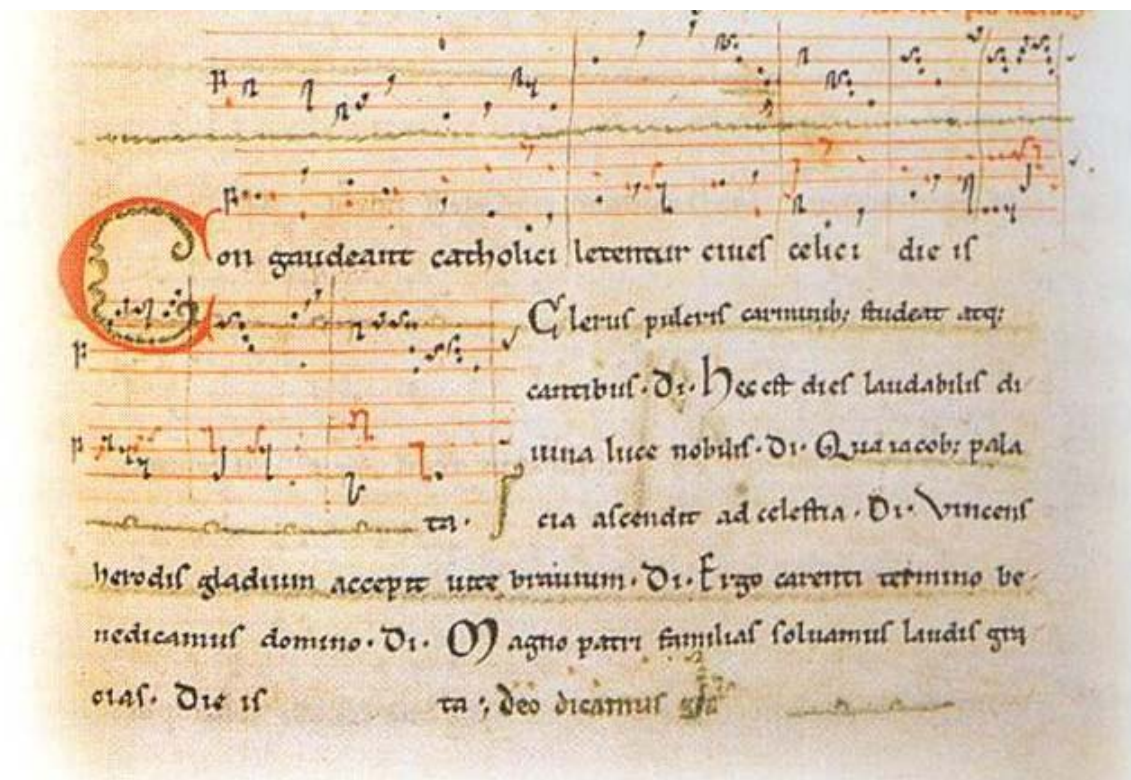 Congaudeant catholici letentur ciues celici die is
Clerus pulcris carminib; studeat atq;
cantibus. Di. Hec est dies laudabilis di
uina luce nobilis. Di. Qua iacob; pala
ta. cia ascendit ad celestia. Di. Vincens
herodis gladium accepit uite brauium. Di. Ergo carenti termino be
nedicamus domino. Di. Magno patri familias soluamus laudis gra
cias. Die is ta; deo dicamus